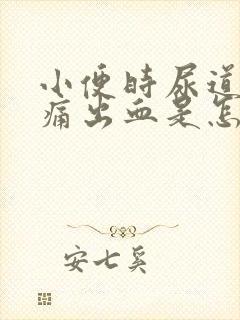 小便时尿道
痛出血是怎
安七奚